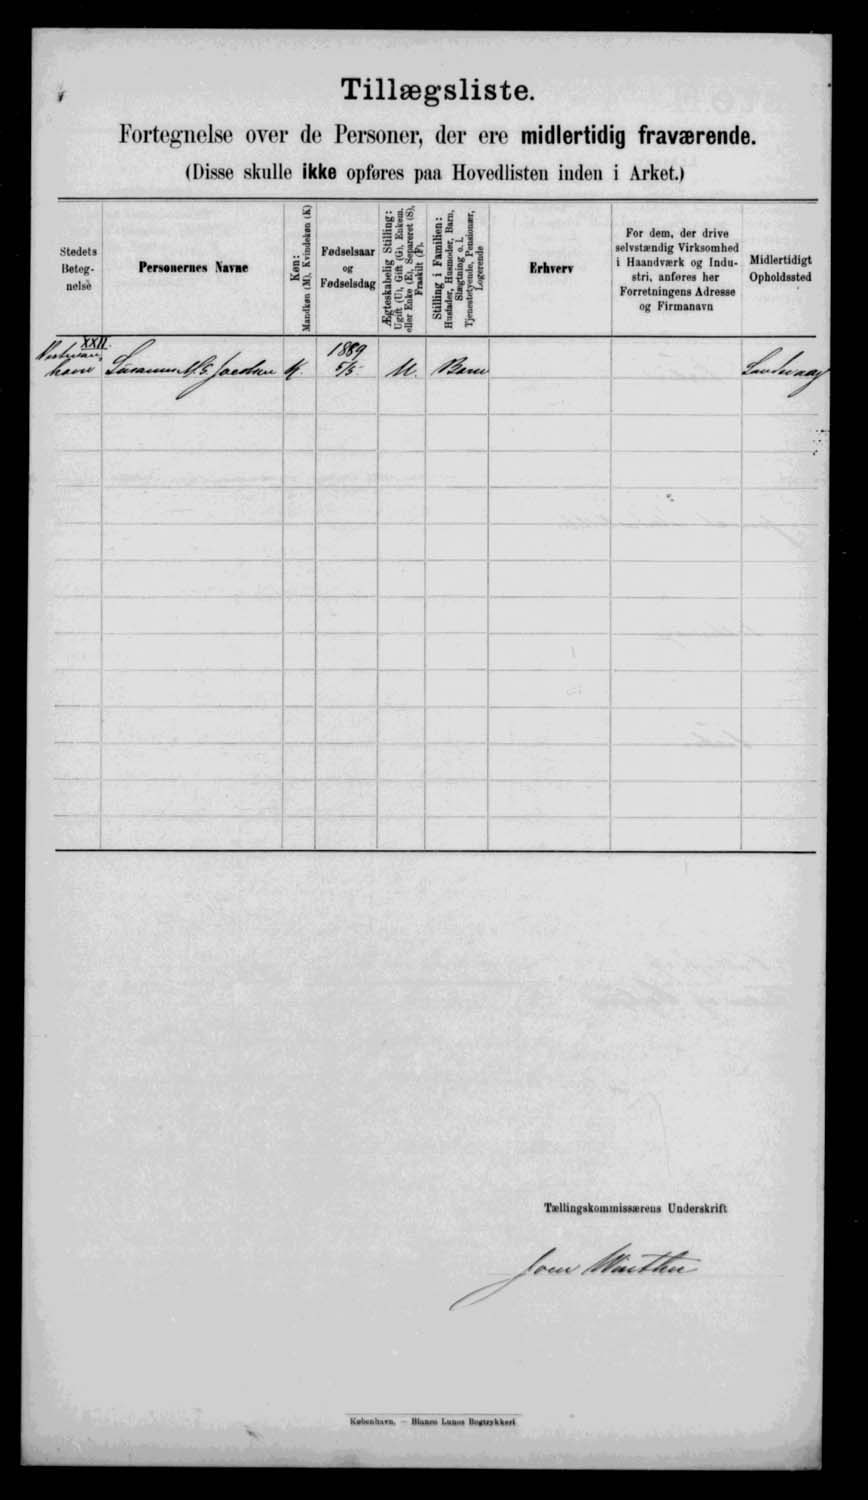 Tillægsliste.
Fortegnelse over de Personer, der ere midlertidig fraværende.
(Disse skulle ikke opføres paa Hovedlisten inden i Arket.)
Stedets
Beteg-
nelse
Personernes Navne
Køn:
Mandkøn (M), Kvindekøn (K)
Fødselsaar
og
Fødselsdag
Ægteskabelig Stilling:
Ugift (U), Gift (G), Enkem.
eller Enke (E), Separeret (S),
Fraskilt (F).
Stilling i Familien:
Husfader, Husmoder, Barn,
Slægtning o. l.
Tjenestetyende, Pensionær,
Logerende
Erhverv
For dem, der drive
selvstændig Virksomhed
i Haandværk og Indu-
stri, anføres her
Forretningens Adresse
og Firmanavn
Midlertidigt
Opholdssted
XXII.
havn Susanna Jacobsen K. 1889 5/5 U. Barn Sandevaag
Tællingskommissærens Underskrift
Joen Winther
København. – Bianco Lunos Bogtrykkeri